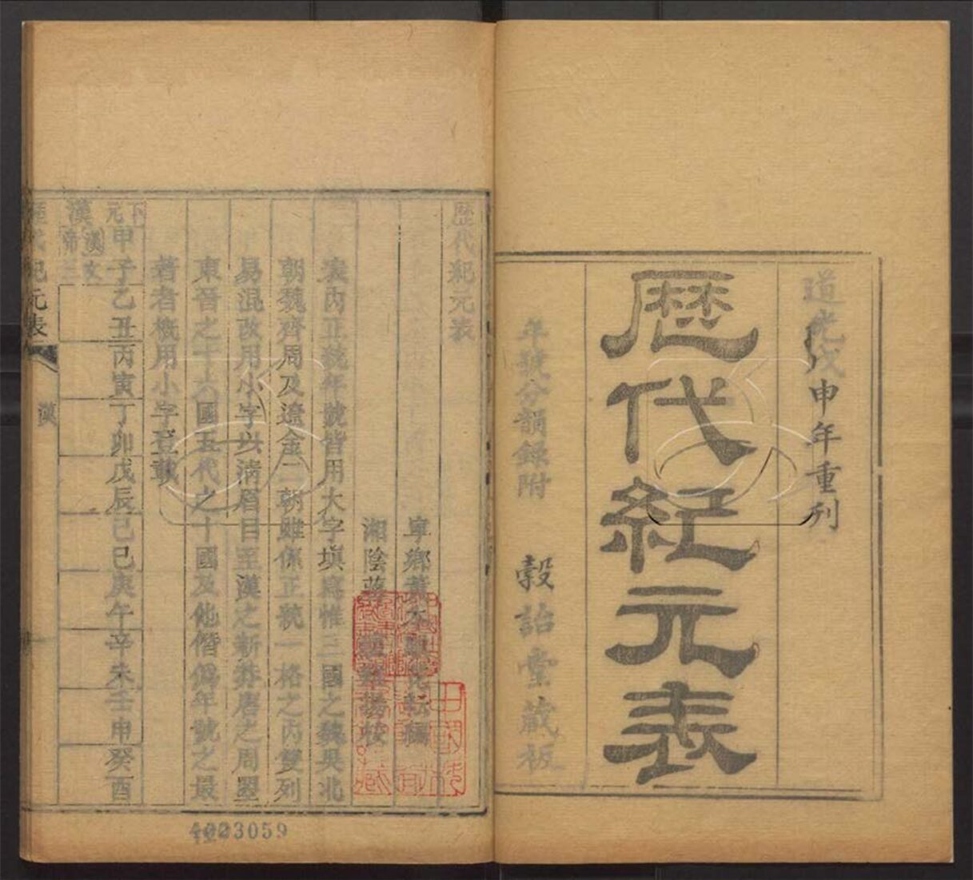 道光戊申年重刊
歷代紀元表
年號分韻錄附
穀詒堂藏板
歷代紀元表
寧鄉
湘陰
表內正統年號皆用大字填寫惟三國之魏吳北
朝魏齊周及遼金二朝雖係正統一格之內雙列
易混改用小字以清眉目至漢之新莽唐之周曌
東晉之十六國五代之十國及他僭偽年號之最
著者概用小字登載
甲子乙丑丙寅丁卯戊辰己巳庚午辛未壬申癸酉
下元
漢
漢文帝三
歷代紀元表
漢
3059